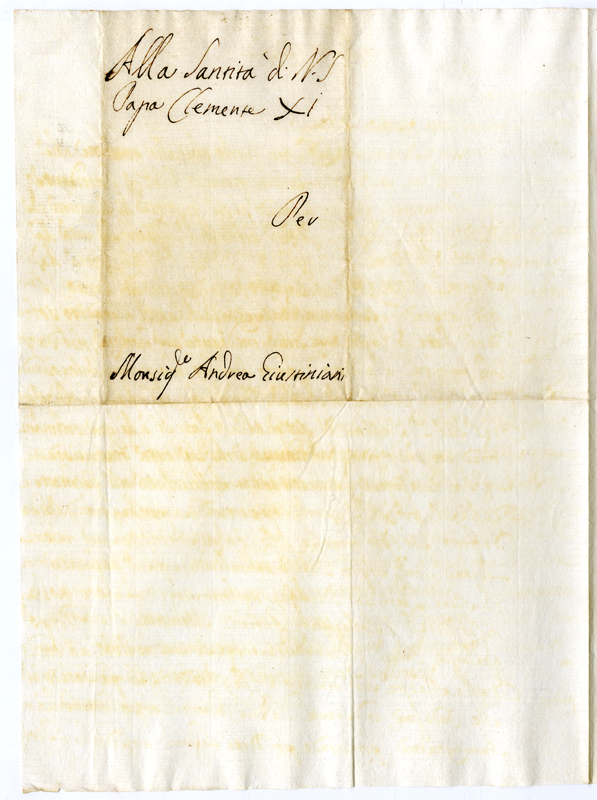 Alla Santità di N. S
Papa Clemente XI
Per
Monsig.re Andrea Giustiniani